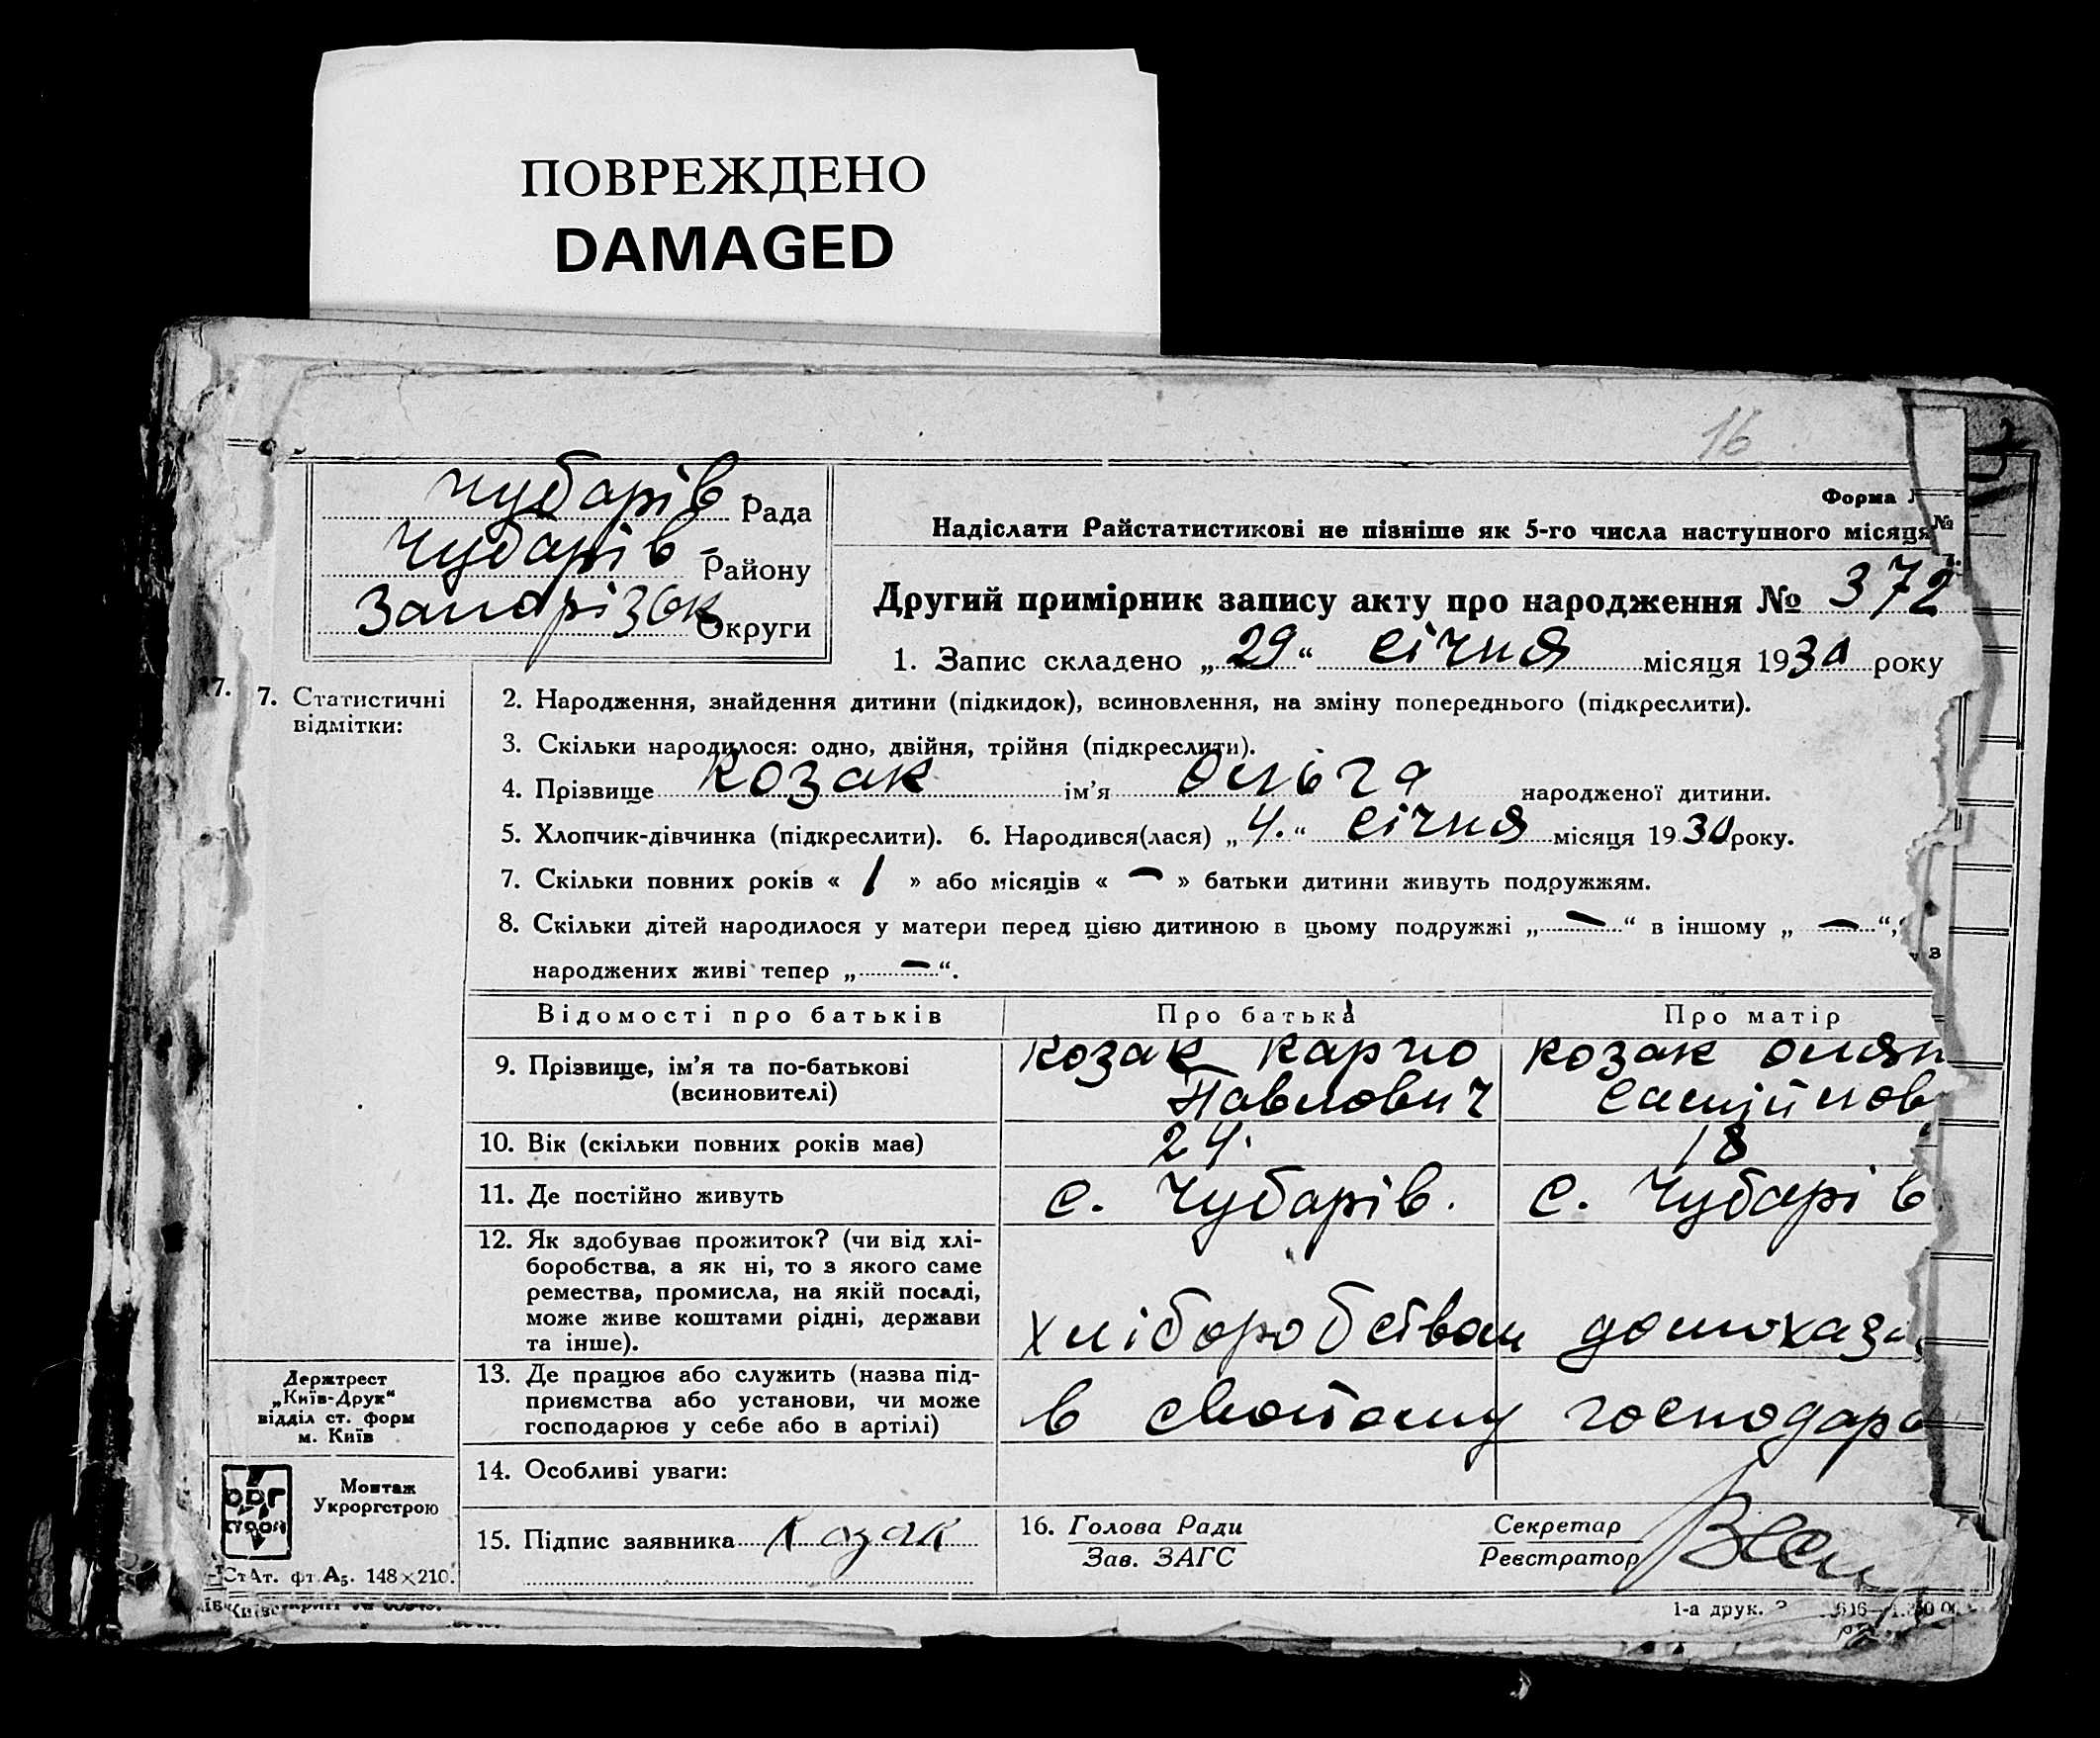 ПОВРЕЖДЕНО
DAMAGED
16
Чубарів Рада
Чубарів Району
Запорізьк Округи
Форма
Надіслати Райстатистикові не пізніше як 5-го числа наступного місяця
№
Другий примірник запису акту про народження № 372
1. Запис складено „29“ січня місяця 1930 року
7. 7. Статистичні
відмітки:
2. Народження, знайдення дитини (підкидок), всиновлення, на зміну попереднього (підкреслити).
3. Скільки народилося: одно, двійня, трійня (підкреслити).
4. Прізвище Козак ім'я Ольга народженої дитини.
5. Хлопчик-дівчинка (підкреслити). 6. Народився(лася) „4.“ січня місяця 1930 року.
7. Скільки повних років « 1 » або місяців « — » батьки дитини живуть подружжям.
8. Скільки дітей народилося у матери перед цією дитиною в цьому подружжі „—“ в іншому „—“,
з
народжених живі тепер „—“.
Відомості про батьків Про батька Про матір
9. Прізвище, ім'я та по-батькові
(всиновителі)
Козак Карпо
Павлович
Козак Олян
10. Вік (скільки повних років має) 24. 18
11. Де постійно живуть с. Чубарів. с. Чубарів
12. Як здобуває прожиток? (чи від хлі-
боробства, а як ні, то з якого саме
ремества, промисла, на якій посаді,
може живе коштами рідні, держави
та інше).
хліборобством домохазя
13. Де працює або служить (назва під-
приємства або установи, чи може
господарює у себе або в артілі)
в свойому господар
14. Особливі уваги:
15. Підпис заявника Козак
16. Голова Ради
Зав. ЗАГС
Секретар
Реєстратор
Держтрест
„Київ-Друк“
відділ ст. форм
м. Київ
Монтаж
Укрооргстрою
СтАт. фт. А5. 148×210.
1-а друк.